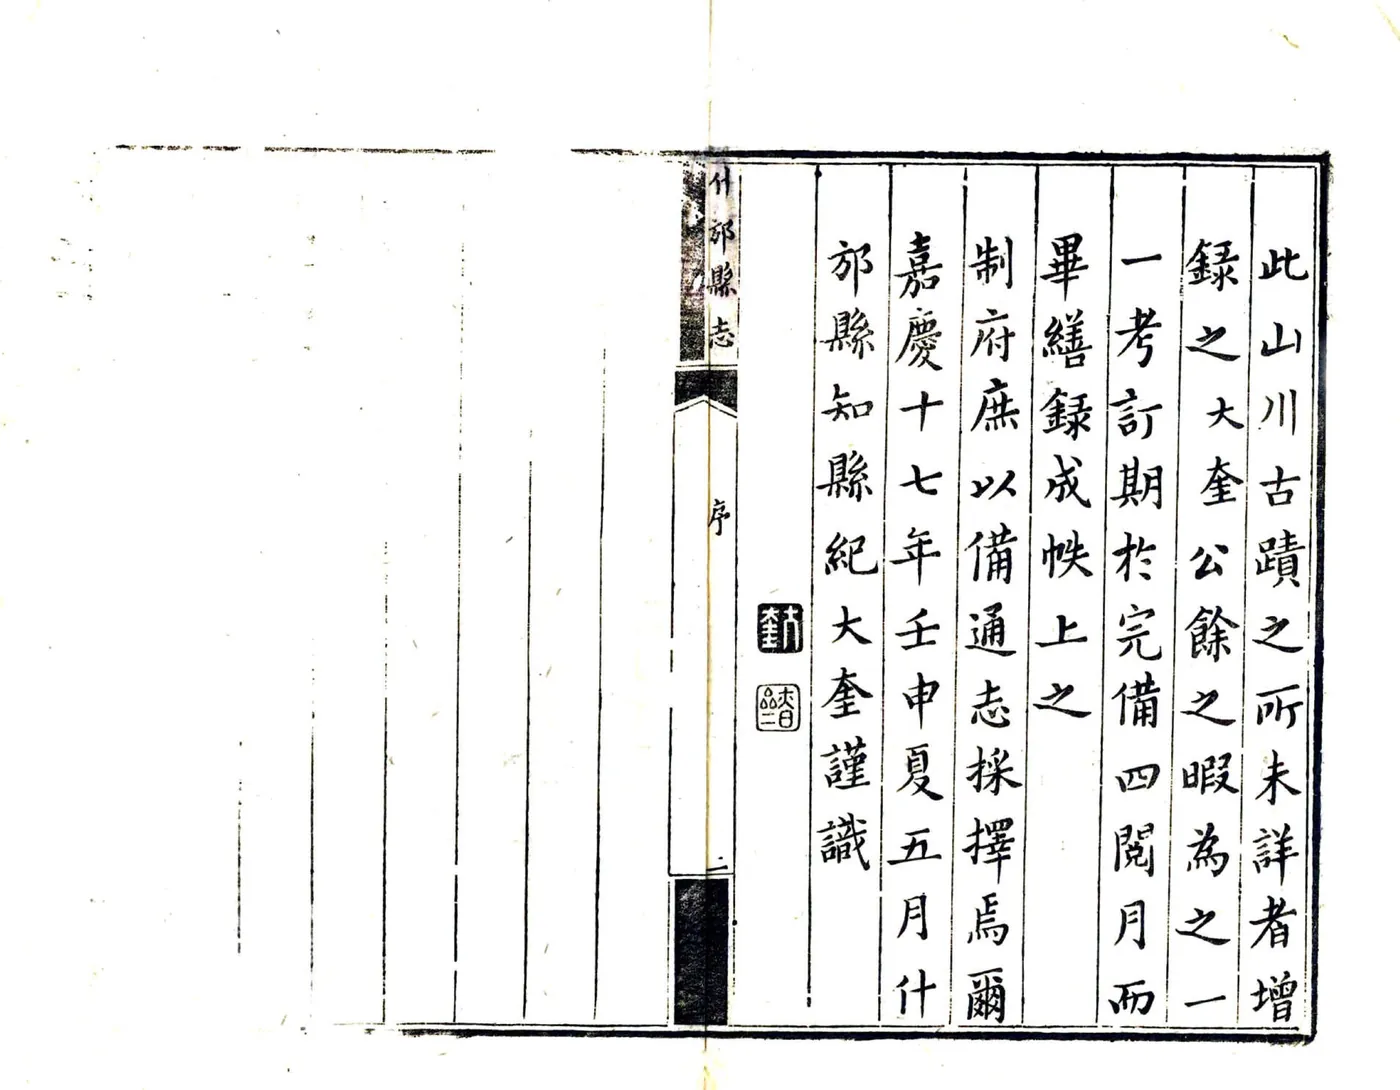 此山川古蹟之所未詳者增
録之大奎公餘之暇為之一
一考訂期於完備四閲月而
畢繕録成帙上之
制府庶以備通志採擇焉爾
嘉慶十七年壬申夏五月什
邡縣知縣紀大奎謹識
大奎
什邡縣志
序
二